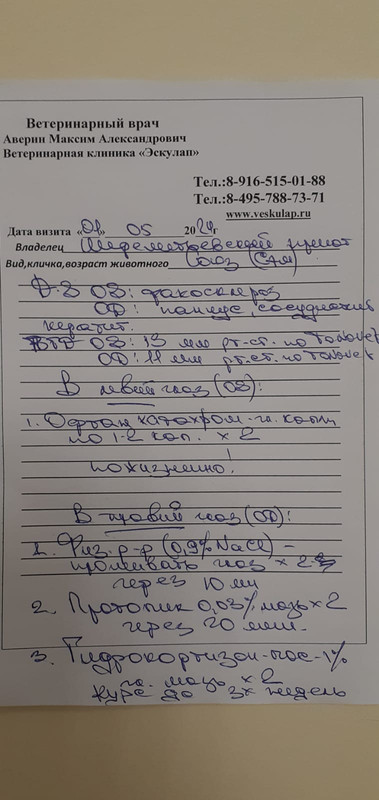 Ветеринарный врач
Аверин Максим Александрович
Ветеринарная клиника «Эскулап»
Тел.:8-916-515-01-88
Тел.:8-495-788-73-71
www.veskulap.ru
Дата визита «01» 05 2024г
Владелец Шереметьевский приют
Вид,кличка,возраст животного Союз (Сам)
D-з OS: факосклероз
OD: паннус, сосудистый
кератит.
ВГД OS: 13 мм рт.ст. по Tonovet
OD: 11 мм рт.ст. по Tonovet
В левый глаз (OS):
1. Офтан катахром-гл. капли
по 1-2 кап. x 2
пожизненно!
В правый глаз (OD):
1. Физ. р-р (0,9% NaCl) –
промывать глаз x 2-3
через 10 мин
2. Протопик 0,03% мазь x 2
через 20 мин.
3. Гидрокортизон-пос-1%
гл. мазь x 2
курс до 3х недель